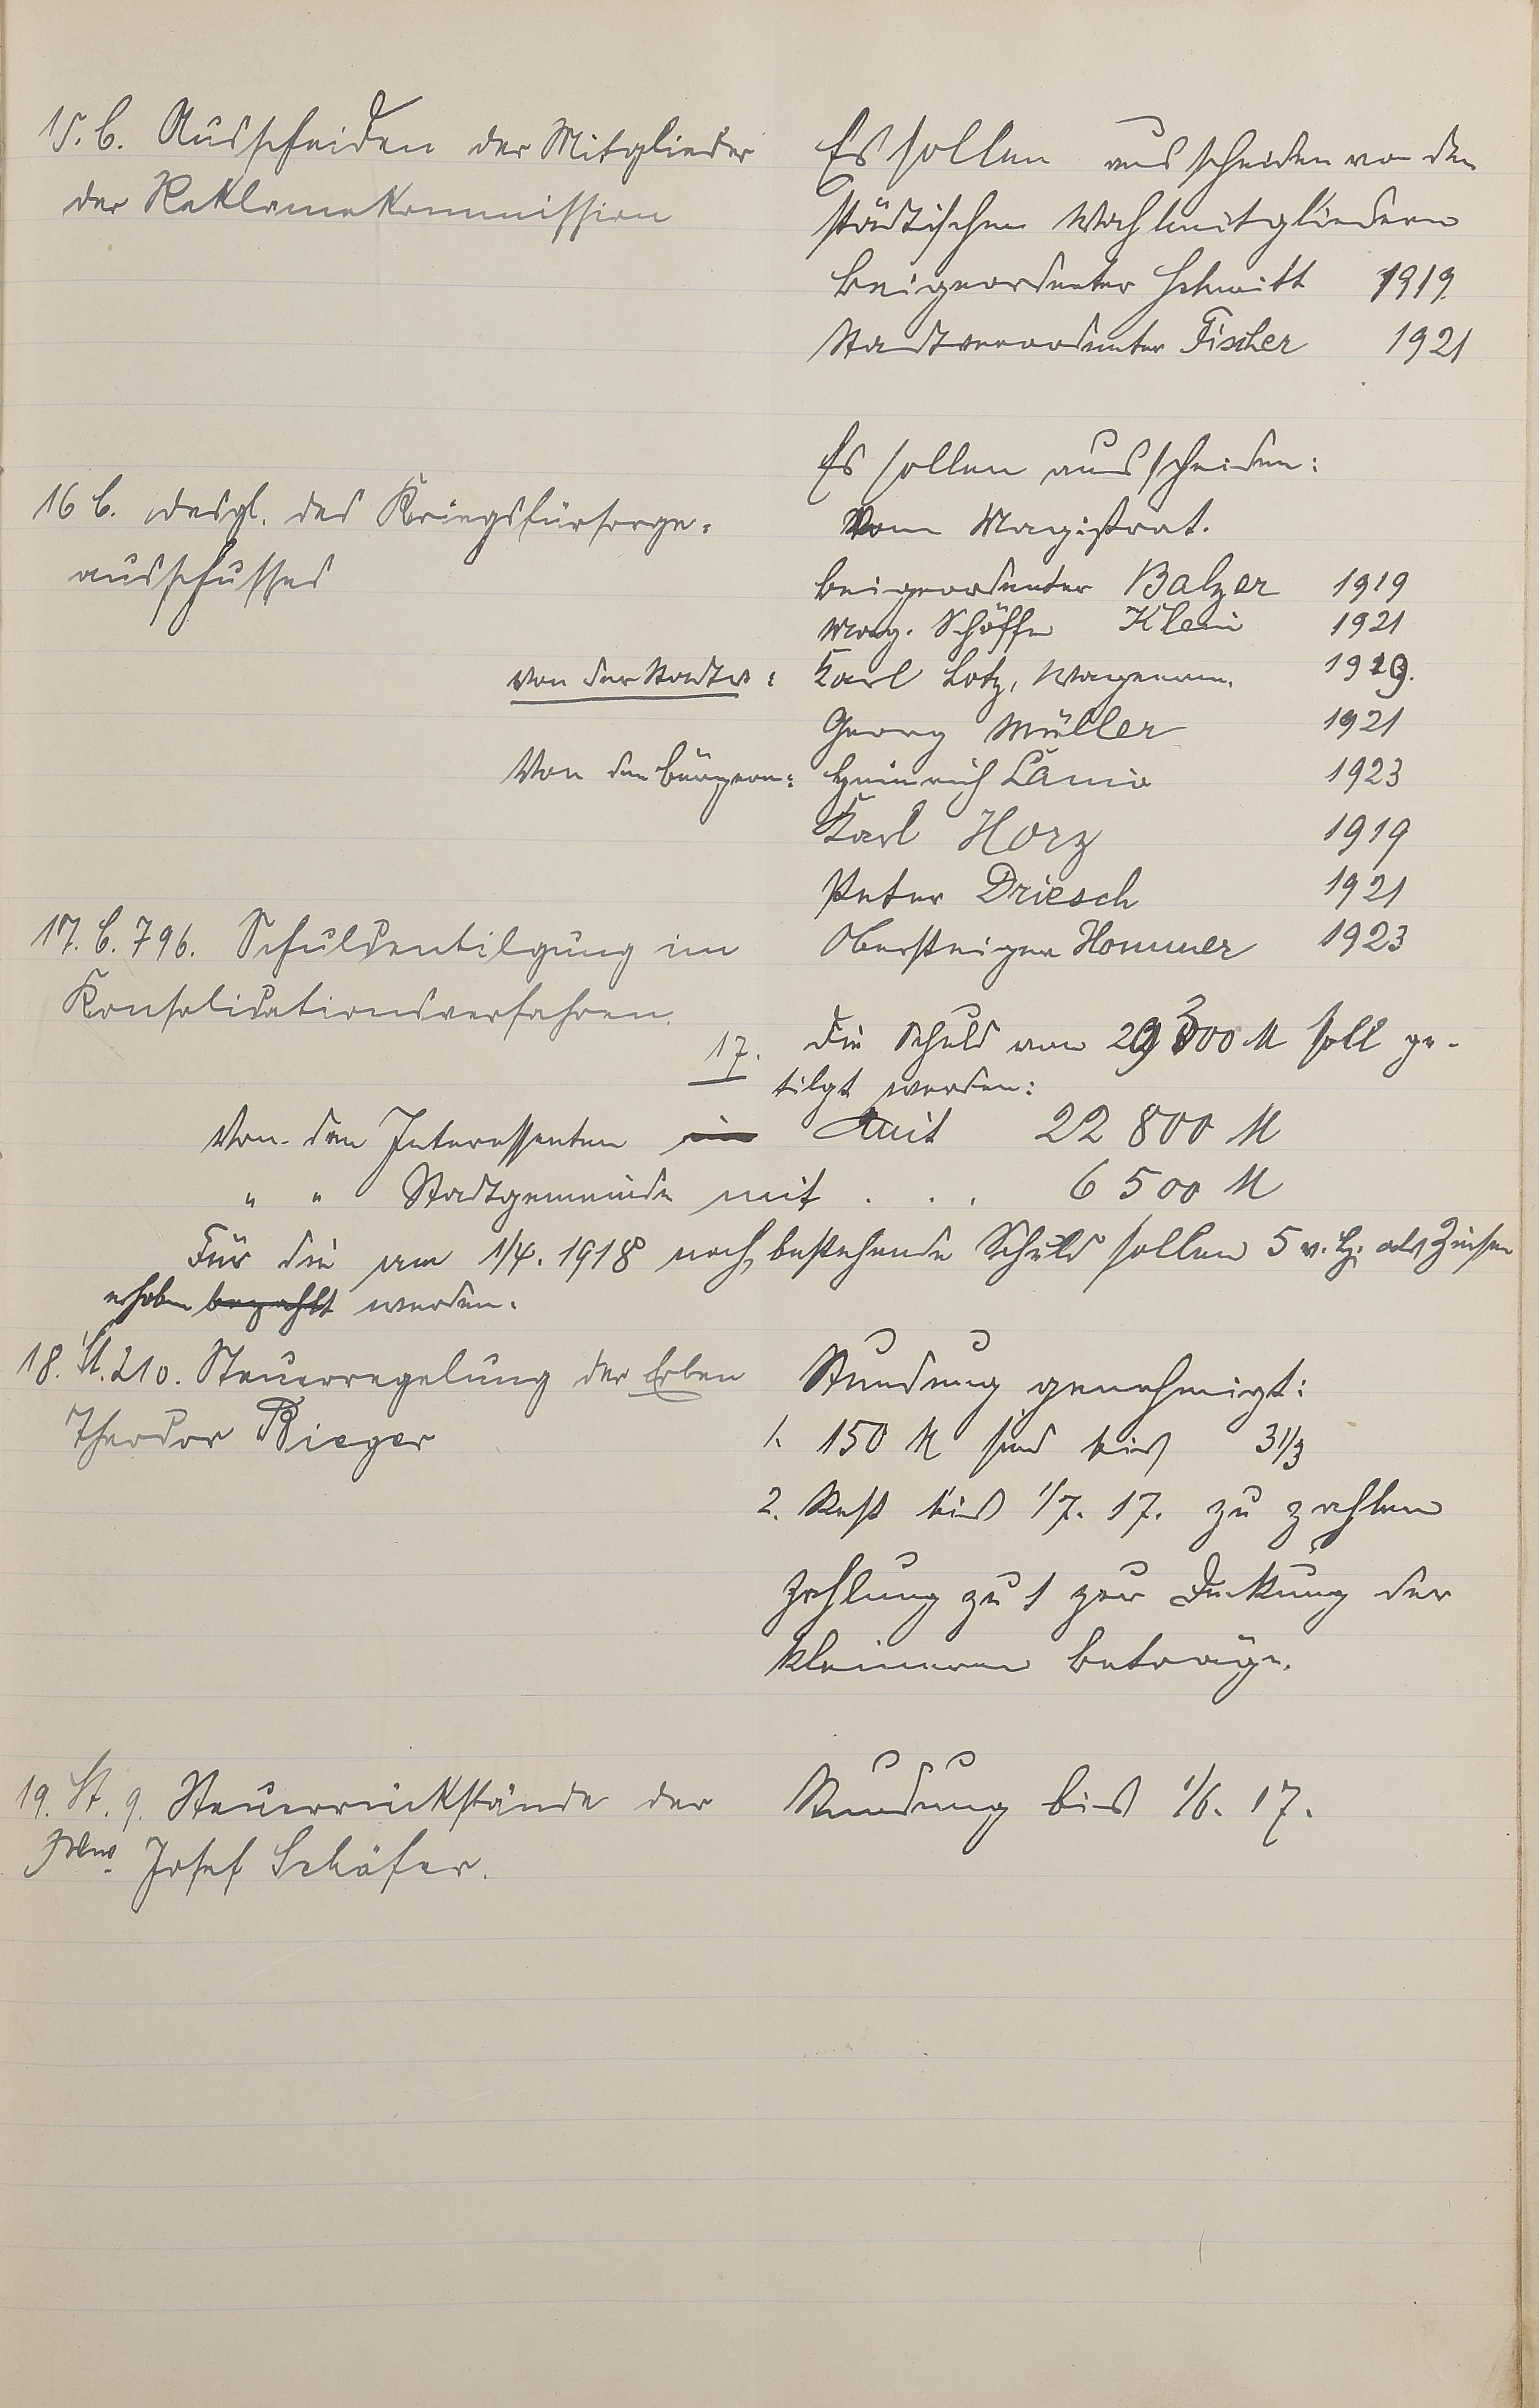 15. b. Ausscheiden der Mitglieder
der Reklamekommission
Es sollen ausscheiden von den
städtischen Wahlmitgliedern
Beigeordneter Schmitt 1919
Stadtverordneter Fischer 1921
16 b. desgl. des Kriegsfürsorge-
ausschusses
Es sollen ausscheiden:
Vom Magistrat.
Beigeordneter Balzer 1919
Mag. Schöffe Klein 1921
von der Stadtv: Karl Lotz, 1919.
Georg Müller 1921
Von den Bürgern: Heinrich 1923
Karl Horz 1919
Peter Driesch 1921
Obersteiger Hommer 1923
17. b. 796. Schuldentilgung im
Konsolidationsverfahren.
17. Die Schuld von 29300 M soll ge-
tilgt werden:
Von den Interessenten mit 22 800 M
" " Stadtgemeinde mit . . . 6 500 M
Für die am 1/4. 1918 noch bestehende Schuld sollen 5 v. H. als Zinsen
erhoben bezahlt werden.
18. St. 210. Steuerregelung der Erben
Theodor Rieger
Stundung genehmigt:
1. 150 M sind bis 31/3
2. Rest bis 1/7. 17. zu zahlen
Zahlung zu 1 zur Deckung der
kleineren Beträge.
19. St. 9. Steuerrückstände der
Josef Schäfer.
Stundung bis 1/6. 17.